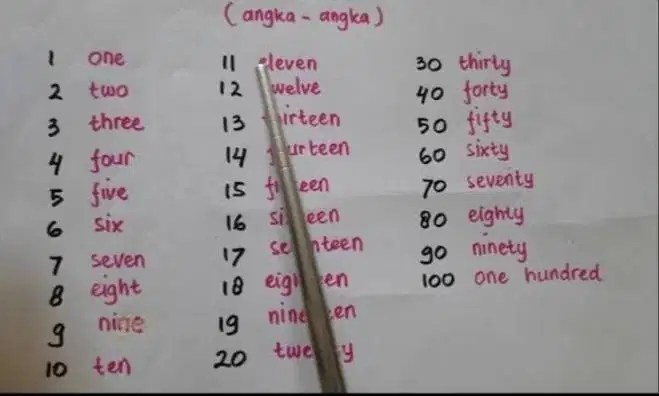 (angka - angka)
1 one
2 two
3 three
4 four
5 five
6 six
7 seven
8 eight
9 nine
10 ten
11 eleven
12 twelve
13 thirteen
14 fourteen
15 fifteen
16 sixteen
17 seventeen
18 eighteen
19 nineteen
20 twenty
30 thirty
40 forty
50 fifty
60 sixty
70 seventy
80 eighty
90 ninety
100 one hundred